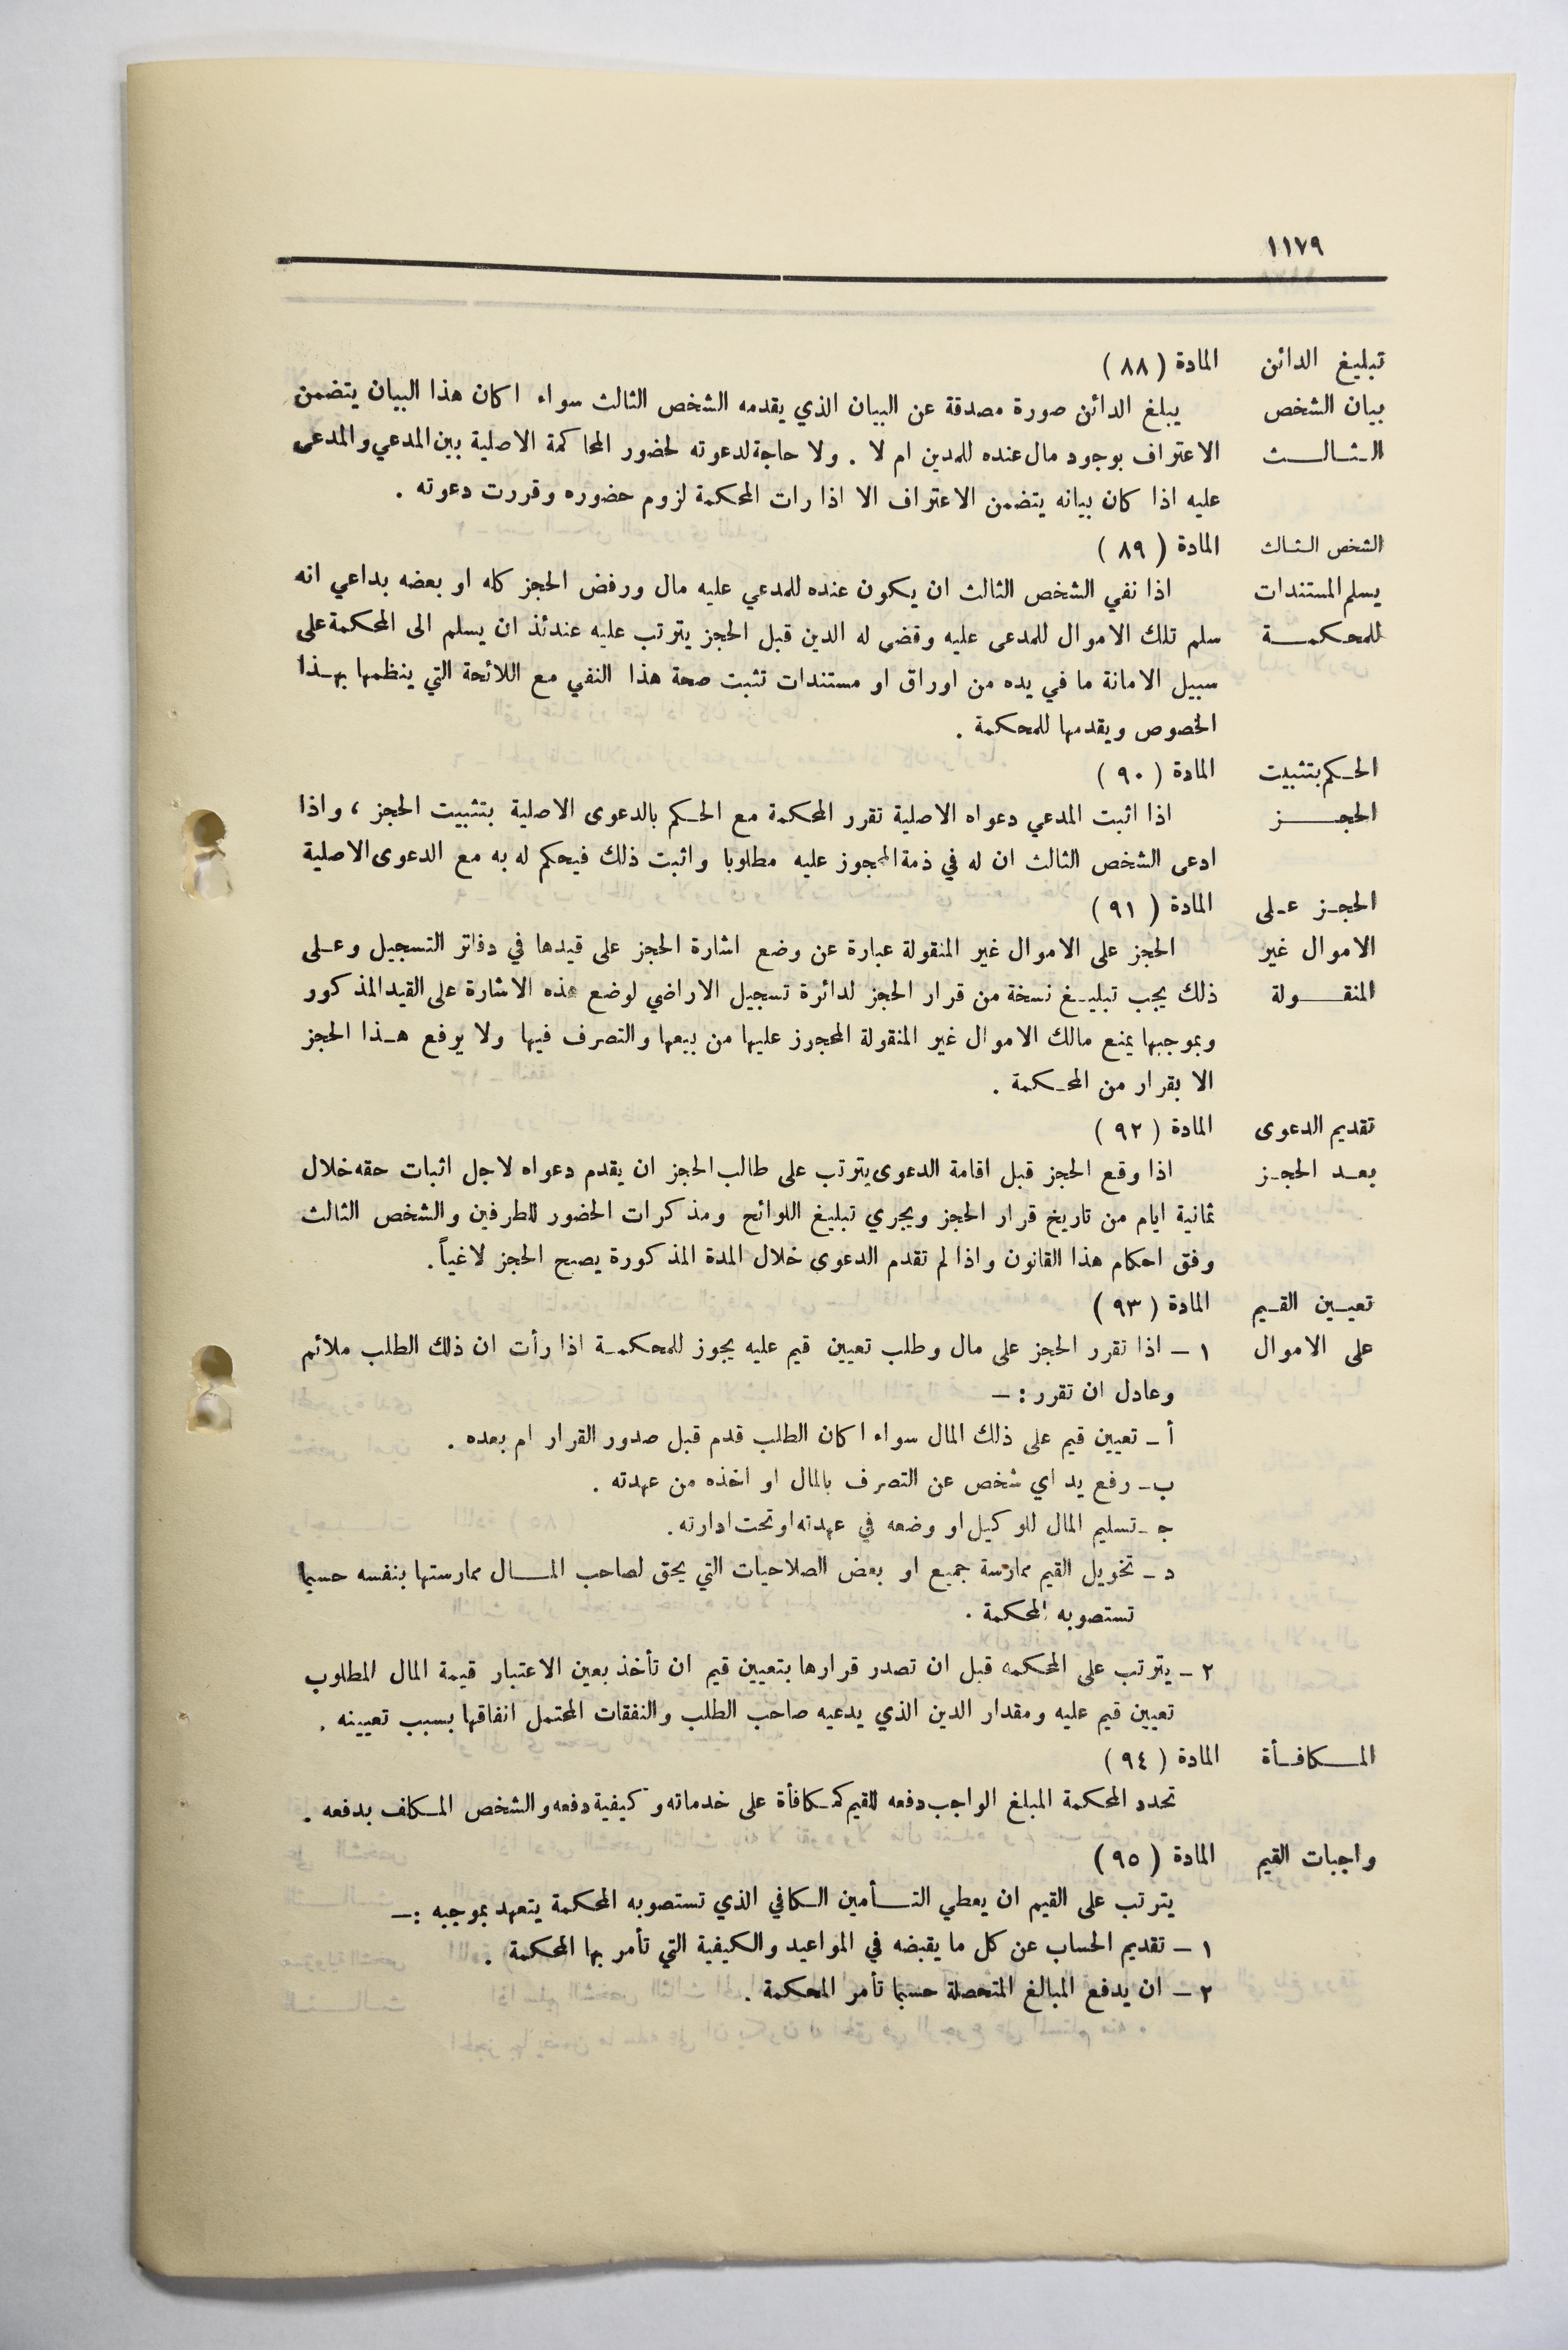 ١١٧٩
تبليغ الدائن المادة ( ٨٨ )
بيان الشخص يبلغ الدائن صورة مصدقة عن البيان الذي يقدمه الشخص الثالث سواء اكان هذا البيان يتضمن
الثالث الاعتراف بوجود مال عنده للمدين ام لا . ولا حاجة لدعوته لحضور المحاكمة الاصلية بين المدعي والمدعى
عليه اذا كان بيانه يتضمن الاعتراف الا اذا رات المحكمة لزوم حضوره وقررت دعوته .
الشخص الثالث المادة ( ٨٩ )
يسلم المستندات اذا نفي الشخص الثالث ان يكون عنده للمدعي عليه مال ورفض الحجز كله او بعضه بداعي انه
للمحكمة سلم تلك الاموال للمدعى عليه وقضى له الدين قبل الحجز يترتب عليه عندئذ ان يسلم الى المحكمة على
سبيل الامانة ما في يده من اوراق او مستندات تثبت صحة هذا النفي مع اللائحة التي ينظمها بهذا
الخصوص ويقدمها للمحكمة .
الحكم بتثبيت المادة ( ٩٠ )
الحجز اذا اثبت المدعي دعواه الاصلية تقرر المحكمة مع الحكم بالدعوى الاصلية بتثبيت الحجز ، واذا
ادعى الشخص الثالث ان له في ذمة المحجوز عليه مطلوبا واثبت ذلك فيحكم له به مع الدعوى الاصلية
الحجز على المادة ( ٩١ )
الاموال غير الحجز على الاموال غير المنقولة عبارة عن وضع اشارة الحجز على قيدها في دفاتر التسجيل وعلى
المنقولة ذلك يجب تبليغ نسخة من قرار الحجز لدائرة تسجيل الاراضي لوضع هذه الاشارة على القيد المذكور
وبموجبها يمنع مالك الاموال غير المنقولة المحجوز عليها من بيعها والتصرف فيها ولا يرفع هذا الحجز
الا بقرار من المحكمة .
تقديم الدعوى المادة ( ٩٢ )
بعد الحجز اذا وقع الحجز قبل اقامة الدعوى يترتب على طالب الحجز ان يقدم دعواه لاجل اثبات حقه خلال
ثمانية ايام من تاريخ قرار الحجز ويجري تبليغ اللوائح ومذكرات الحضور للطرفين والشخص الثالث
وفق احكام هذا القانون واذا لم تقدم الدعوى خلال المدة المذكورة يصبح الحجز لاغياً .
تعيين القيم المادة ( ٩٣ )
على الاموال ١ - اذا تقرر الحجز على مال وطلب تعيين قيم عليه يجوز للمحكمة اذا رأت ان ذلك الطلب ملائم
وعادل ان تقرر : -
أ - تعيين قيم على ذلك المال سواء اكان الطلب قدم قبل صدور القرار ام بعده .
ب - رفع يد اي شخص عن التصرف بالمال او اخذه من عهدته .
ج - تسليم المال للوكيل او وضعه في عهدته او تحت ادارته .
د - تخويل القيم ممارسة جميع او بعض الصلاحيات التي يحق لصاحب المال ممارستها بنفسه حسبما
تستصوبه المحكمة .
٢ - يترتب على المحكمه قبل ان تصدر قرارها بتعيين قيم ان تأخذ بعين الاعتبار قيمة المال المطلوب
تعيين قيم عليه ومقدار الدين الذي يدعيه صاحب الطلب والنفقات المحتمل انفاقها بسبب تعيينه .
المكافأة المادة ( ٩٤ )
تحدد المحكمة المبلغ الواجب دفعه للقيم كمكافأة على خدماته وكيفية دفعه والشخص المكلف بدفعه .
واجبات القيم المادة ( ٩٥ )
يترتب على القيم ان يعطي التأمين الكافي الذي تستصوبه المحكمة يتعهد بموجبه : -
١ - تقديم الحساب عن كل ما يقبضه في المواعيد والكيفية التي تأمر بها المحكمة .
٢ - ان يدفع المبالغ المتحصلة حسبما تأمر المحكمة .